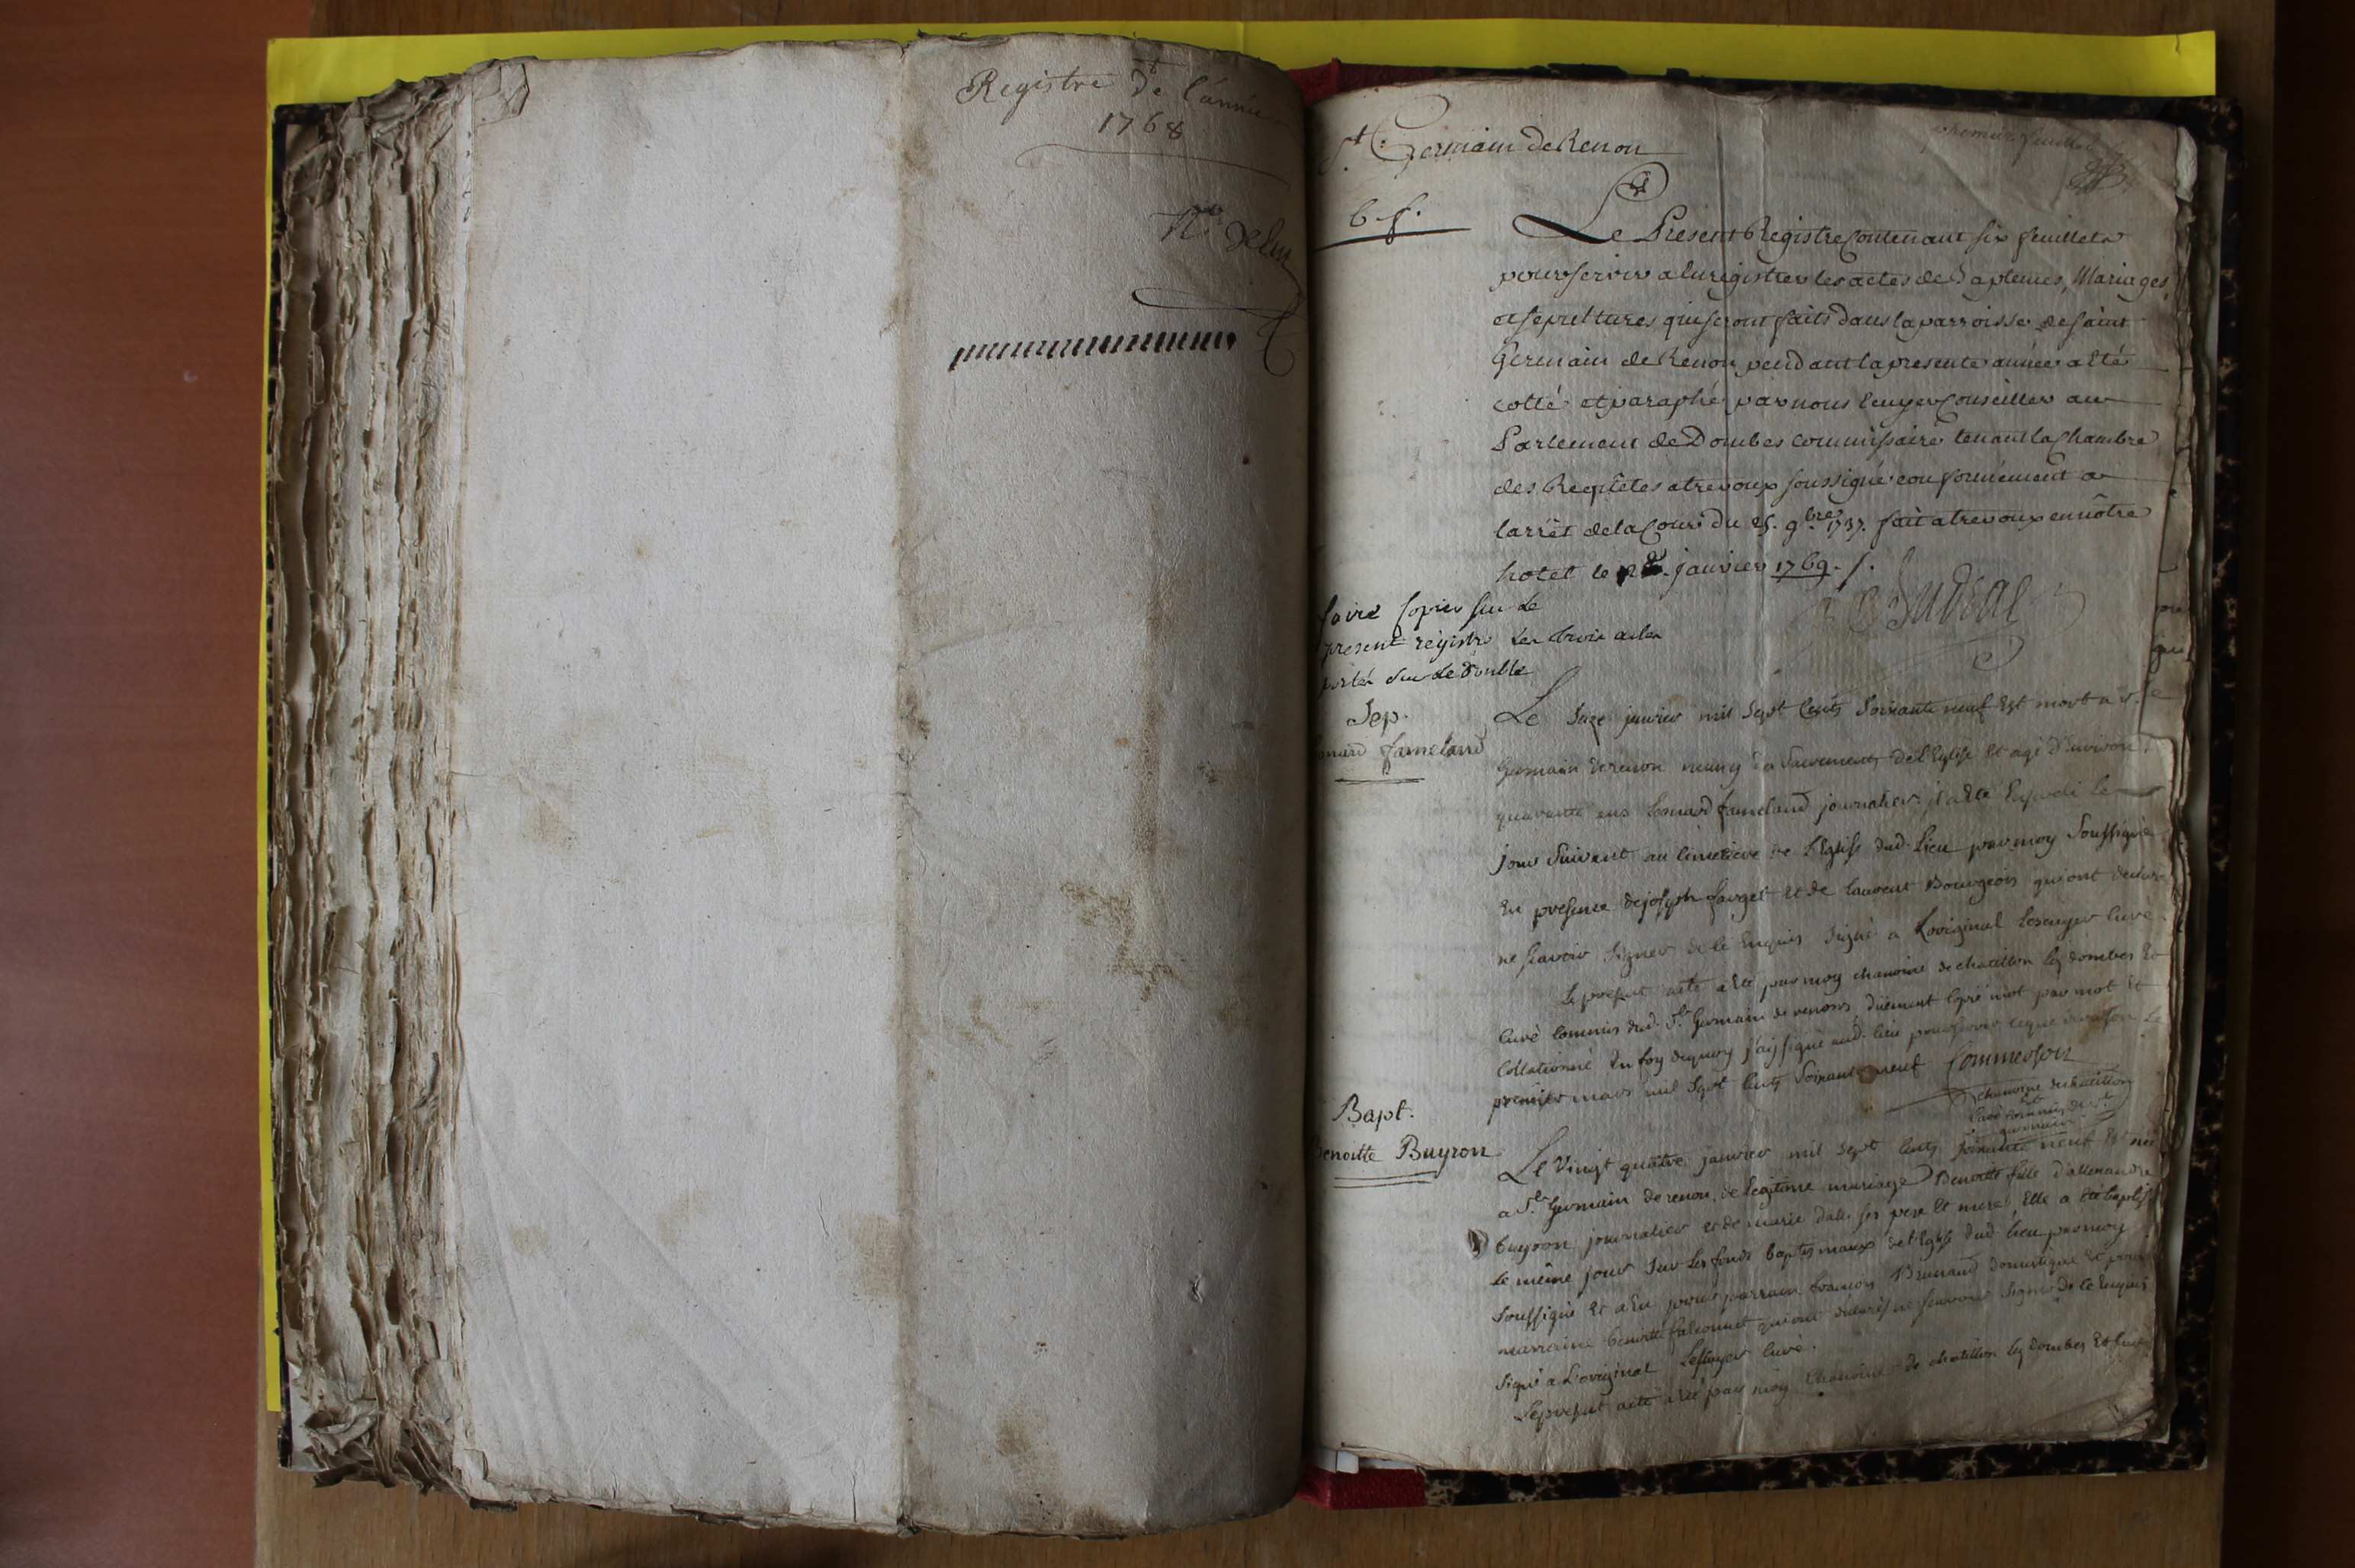 Registre de l'année
1768
St. Germain de Renon
premier feuillet
6 f.
Le Present Registre Contenant six feuillets
pour servir a Enregistrer les actes de Baptemes, Mariages,
et sepultures qui seront faits dans la parroisse de saint
Germain de Renon pendant la presente année a Eté
cotté et paraphé par nous Ecuyer Conseiller au
Parlement de Dombes Commissaire tenant la Chambre
des Requêtes a trevoux soussigné conformement a
larrêt de la Cour du 25. 9bre 1737. fait a trevoux en nôtre
hotel le janvier 1769.
faire copier sur le
present régistre les trois actes
portés sur le Double
Sep.
fameland
Le Seze janvier mil Sept Cents Soixante neuf Est mort a St
Germain de renon muny des Sacrements de l'Eglise Et agé d'Environ
quarante ans Lienard fameland journalier il a Eté Enseveli le
jour Suivant au Cimetiere de l'Eglise dud. Lieu par moy Soussigné
En presence de joseph farget et de laurent Bourgeois qui ont declaré
ne scavoir Signer de ce Enquis Signé a L'original Lescuyer Curé.
Le present acte a Eté par moy chanoine de chatillon les dombes Et
Curé Commis dud. St. Germain de renon, düement Copié mot par mot Et
Collationné En foy de quoy j'ay signé aud. lieu pour servir ce que de raison Le
premier mars mil Sept Cents Soixante neuf Commerson
chanoine de chatillon
Curé Commis de St.
germain
Bapt.
Benoitte Buyron
Le Vingt quatre janvier mil Sept Cents Soixante neuf Est née
a St. Germain de renon, de legitime mariage Benoitte fille d'allexandre
buyron journalier et de marie dalle ses pere Et mere, Elle a Eté baptisé
le même jour Sur les fonds baptismaux de l'Eglise dud. lieu par moy
Soussigné Et a Eu pour parrain francois Brunand domestique Et pour
marraine benoitte falconnet qui ont declarés ne scavoir Signer de ce Enquis
Signé a L'original Lescuyer Curé.
Le present acte a Eté par moy Chanoine de chatillon les dombes Et Curé